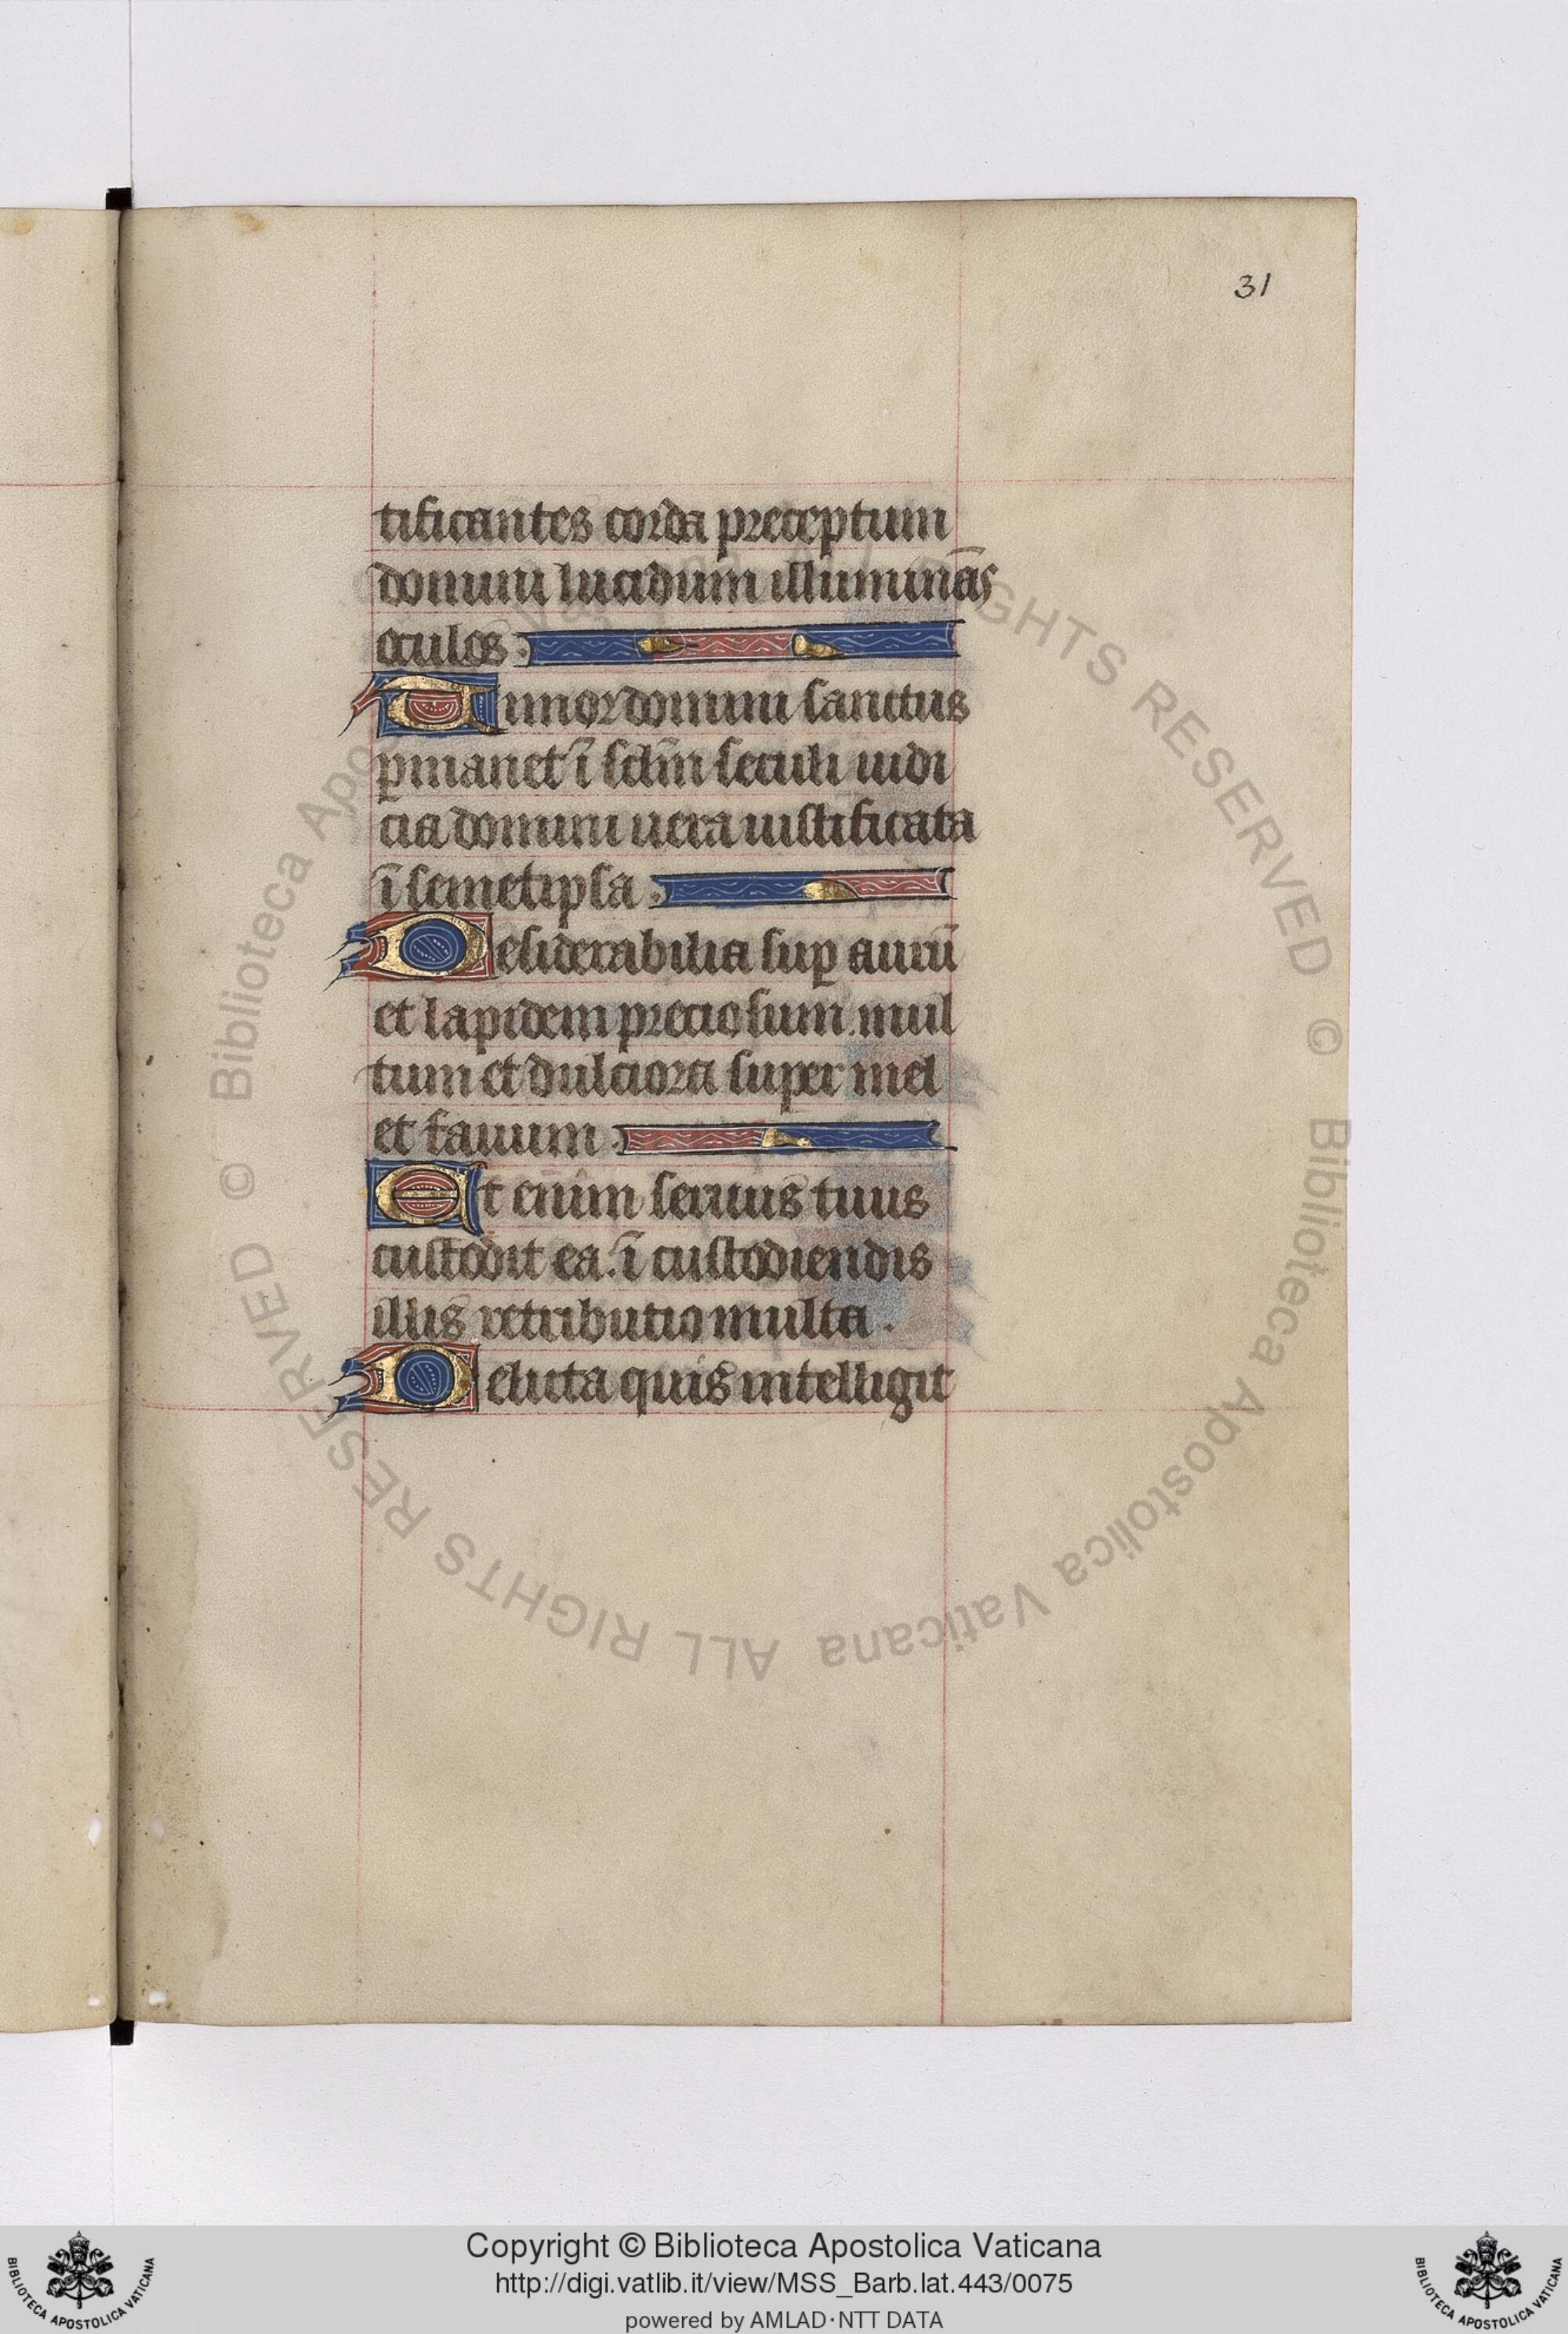 31
tificantes corda preceptum
domini lucidum illuminãs
oculos.
Timor domini sanctus
ꝑmanet ĩ sclm̃ seculi iudi
cia domini uera iustificata
ĩ semetipsa.
Desiderabilia suꝑ aurũ
et lapidem preciosum. mul
tum et dulciora super mel
et fauum.
Et enim seruus tuus
custodit ea. ĩ custodiendis
illis retributio multa.
Delicta quis intelligit
© Biblioteca Apostolica Vaticana ALL RIGHTS RESERVED © Biblioteca Apostolica Vaticana ALL RIGHTS RESERVED
Copyright © Biblioteca Apostolica Vaticana
http://digi.vatlib.it/view/MSS_Barb.lat.443/0075
powered by AMLAD·NTT DATA
BIBLIOTECA APOSTOLICA VATICANA
BIBLIOTECA APOSTOLICA VATICANA